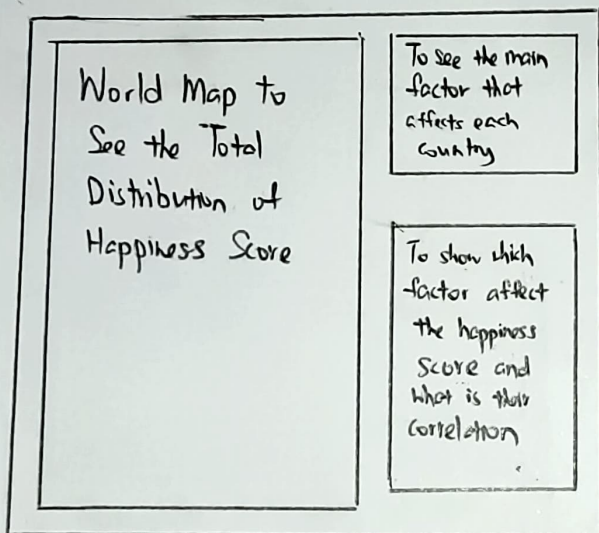 World Map to
See the Total
Distribution of
Happiness Score
To see the main
factor that
affects each
country
To show which
factor affect
the happiness
score and
what is their
correlation